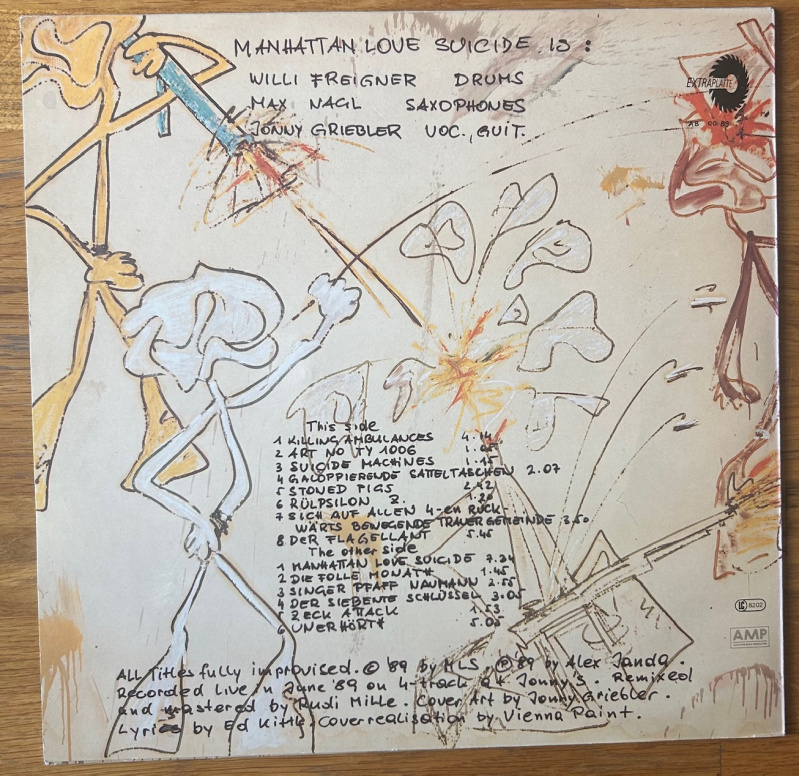 MANHATTAN LOVE SUICIDE IS :
WILLI FREIGNER DRUMS
MAX NAGL SAXOPHONES
JONNY GRIEBLER VOC., GUIT.
EXTRAPLATTE
This side
1 KILLING AMBULANCES 4.14
2 ART NO TY 1006
3 SUICIDE MACHINES 1.15
4 GALOPPIERENDE SATTELTASCHEN 2.07
5 STONED PIGS 2.42
6 RÜLPSILON Z. 1.20
7 SICH AUF ALLEN 4-en RÜCK-
WÄRTS BEWEGENDE TRAUERGEMEINDE 3.50
8 DER FLAGELLANT 5.45
The other side
1 MANHATTAN LOVE SUICIDE 7.24
2 DIE FOLLE MONATH 1.45
3 SINGER PFAFF NAUMANN 2.55
4 DER SIEBENTE SCHLÜSSEL 3.05
5 ZECK ATTACK 1.53
6 UNERHÖRT 5.05
LC 8202
AMP
ALL Titles fully improvised. © '89 by MLS. ℗ '89 by Alex Janda.
Recorded Live in June '89 on 4-track at Jonny's. Remixed
and mastered by Rudi Mille. Cover Art by Jonny Griebler.
Lyrics by Ed Kittl. Coverrealisation by Vienna Paint.